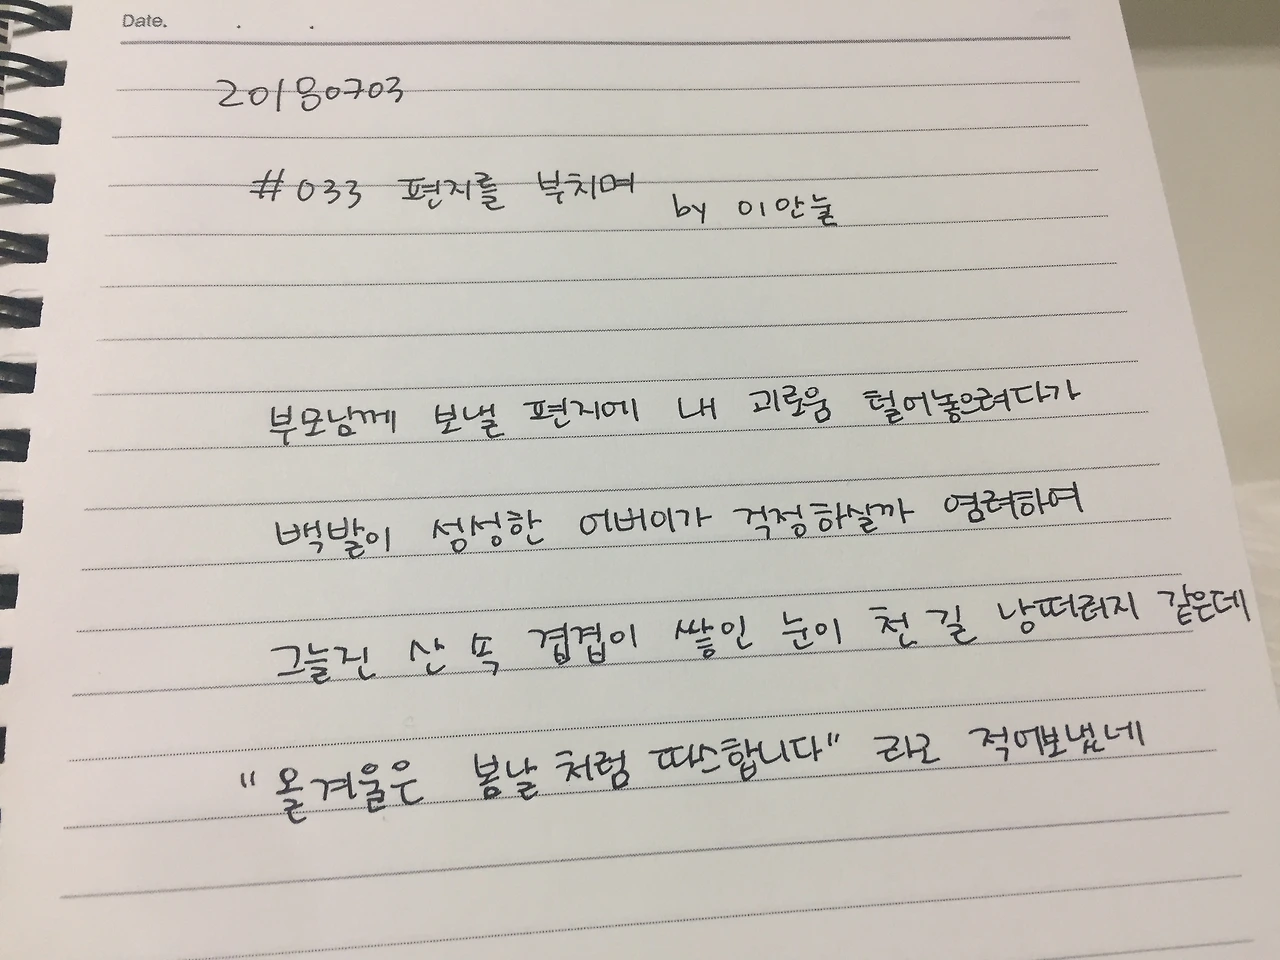 Date. . .
20180703
#033 편지를 부치며
by 이안눌
부모님께 보낼 편지에 내 괴로움 털어놓으려다가
백발이 성성한 어버이가 걱정하실까 염려하여
그늘진 산 속 겹겹이 쌓인 눈이 천 길 낭떠러지 같은데
"올겨울은 봄날처럼 따스합니다" 라고 적어보냈네